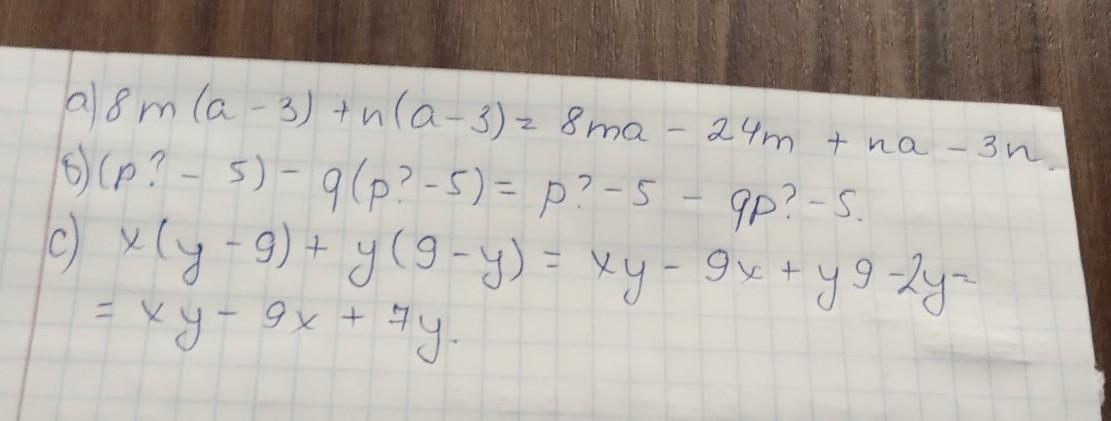 а) 8m(a - 3) + n(a - 3) = 8ma - 24m + na - 3n.
б) (p? - 5) - q(p? - 5) = p? - 5 - qp? - 5.
c) x(y - 9) + y(9 - y) = xy - 9x + y9 - 2y =
= xy - 9x + 7y.